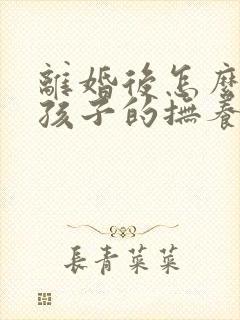 離婚後怎麼
孩子的撫養
長青菜菜